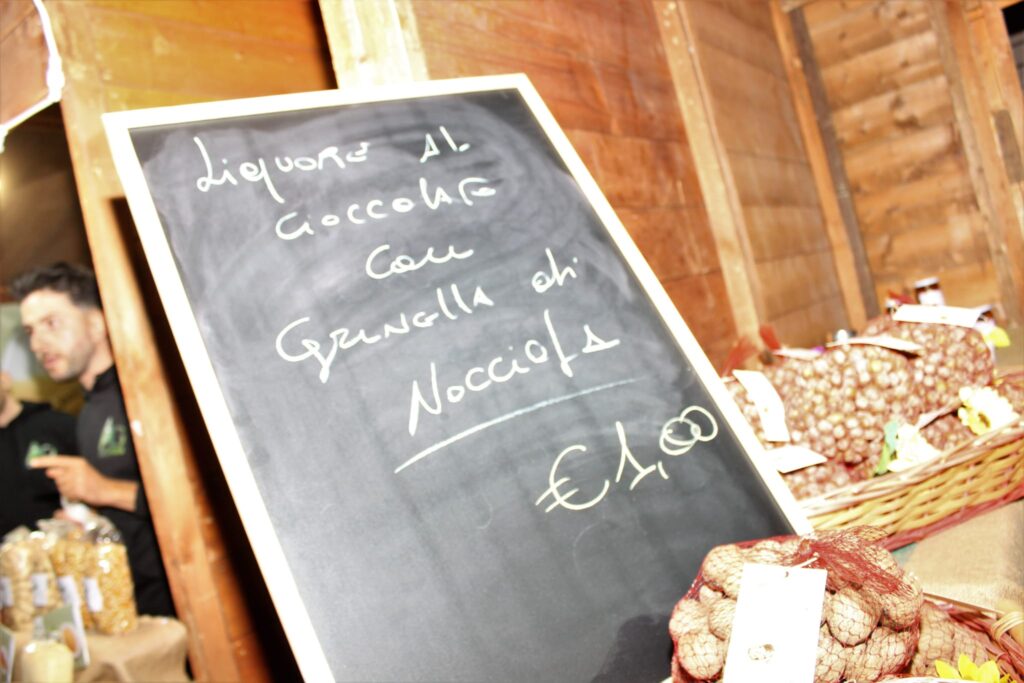 Liquore al
cioccolato
con
Granella di
Nocciola
€1,00